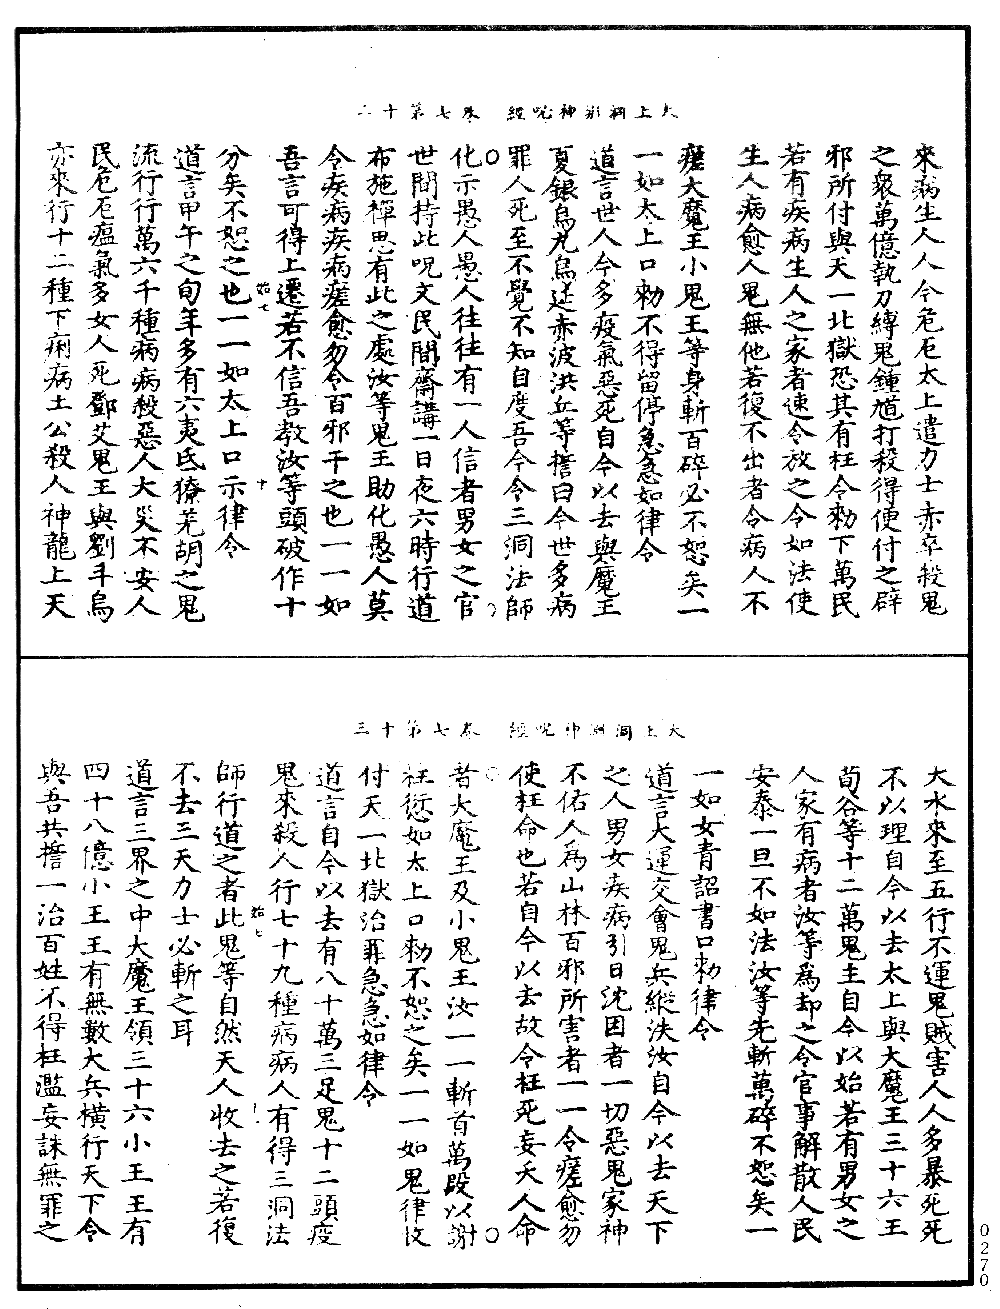 太上洞淵神呪經　卷七第十二
來病生人人今危厄太上遣力士赤卒殺鬼
之衆萬億執刀縛鬼鍾馗打殺得便付之辟
邪所付與天一北獄恐其有枉令勑下萬民
若有疾病生人之家者速令放之令如法使
生人病愈人鬼無他若復不出者令病人不
瘥大魔王小鬼王等身斬百碎必不恕矣一
一如太上口勑不得留停急急如律令
道言世人今多疫氣惡死自今以去與魔王
夏銀烏九烏延赤波洪丘等擔曰今世多病
罪人死至不覺不知自度吾今令三洞法師
化示愚人愚人往往有一人信者男女之官
世間持此呪文民間齋講一日夜六時行道
布施禪思有此之處汝等鬼王助化愚人莫
令疾病疾病瘥愈勿令百邪干之也一一如
吾言可得上遷若不信吾教汝等頭破作十
始七　十
分矣不恕之也一一如太上口示律令
道言甲午之旬年多有六夷氐獠羌胡之鬼
流行行萬六千種病病殺惡人大災不安人
民危厄瘟氣多女人死鄧艾鬼王與劉斗烏
亦來行十二種下痢病土公殺人神龍上天
太上洞淵神呪經　卷七第十三
大水來至五行不運鬼賊害人人多暴死死
不以理自今以去太上與大魔王三十六王
荀谷等十二萬鬼主自今以始若有男女之
人家有病者汝等為却之令官事解散人民
安泰一旦不如法汝等先斬萬碎不恕矣一
一如女青詔書口勑律令
道言大運交會鬼兵縱泆汝自今以去天下
之人男女疾病引日沈困者一切惡鬼家神
不佑人為山林百邪所害者一一令瘥愈勿
使枉命也若自今以去故令枉死妄夭人命
者大魔王及小鬼王汝一一斬首萬段以謝
枉愆如太上口勑不恕之矣一一如鬼律收
付天一北獄治罪急急如律令
道言自今以去有八十萬三足鬼十二頭疫
鬼來殺人行七十九種病病人有得三洞法
始七
師行道之者此鬼等自然天人收去之若復
不去三天力士必斬之耳
道言三界之中大魔王領三十六小王王有
四十八億小王王有無數大兵橫行天下令
與吾共擔一治百姓不得枉濫妄誅無罪之
0270